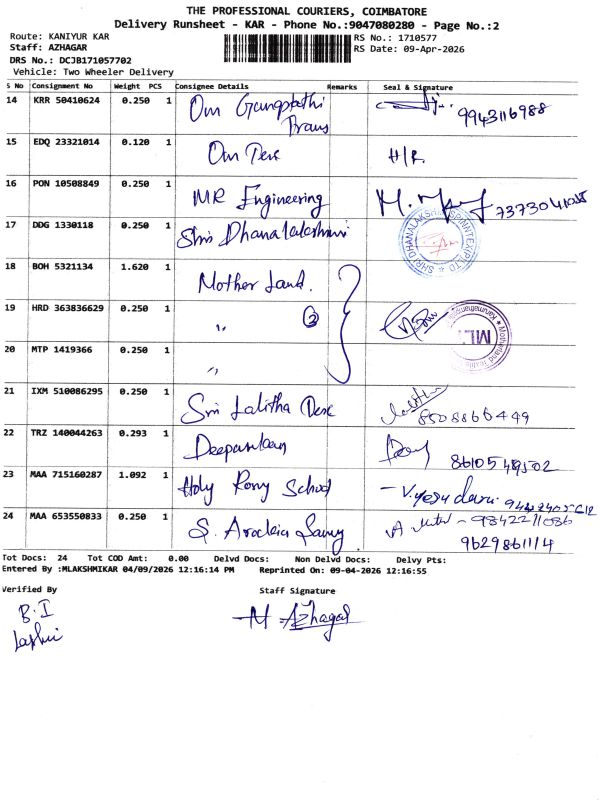 THE PROFESSIONAL COURIERS, COIMBATORE
Delivery Runsheet - KAR - Phone No.:9047080280 - Page No.:2
Route: KANIYUR KAR
RS No.: 1710577
Staff: AZHAGAR
RS Date: 09-Apr-2026
DRS No.: DCJB171057702
Vehicle: Two Wheeler Delivery
S No Consignment No Weight PCS Consignee Details Remarks Seal & Signature
14 KRR 50410624 0.250 1 Om Ganapathi
Trans
9943116988
15 EDQ 23321014 0.120 1 Om Tex H/R
16 PON 10508849 0.250 1 MR Engineering
17 DDG 1330118 0.250 1 Shri Dhanalakshmi
18 BOH 5321134 1.620 1 Mother Land.
19 HRD 363836629 0.250 1 " 3
20 MTP 1419366 0.250 1 "
21 IXM 510086295 0.250 1 Sri Lalitha Tex
8508866449
22 TRZ 140044263 0.293 1
23 MAA 715160287 1.092 1 Holy Rosy School
24 MAA 653550833 0.250 1 S.
9842211086
9629861114
Tot Docs: 24 Tot COD Amt: 0.00 Delvd Docs: Non Delvd Docs: Delvy Pts:
Entered By :MLAKSHMIKAR 04/09/2026 12:16:14 PM Reprinted On: 09-04-2026 12:16:55
Verified By
Staff Signature
B.I
M Azhagar